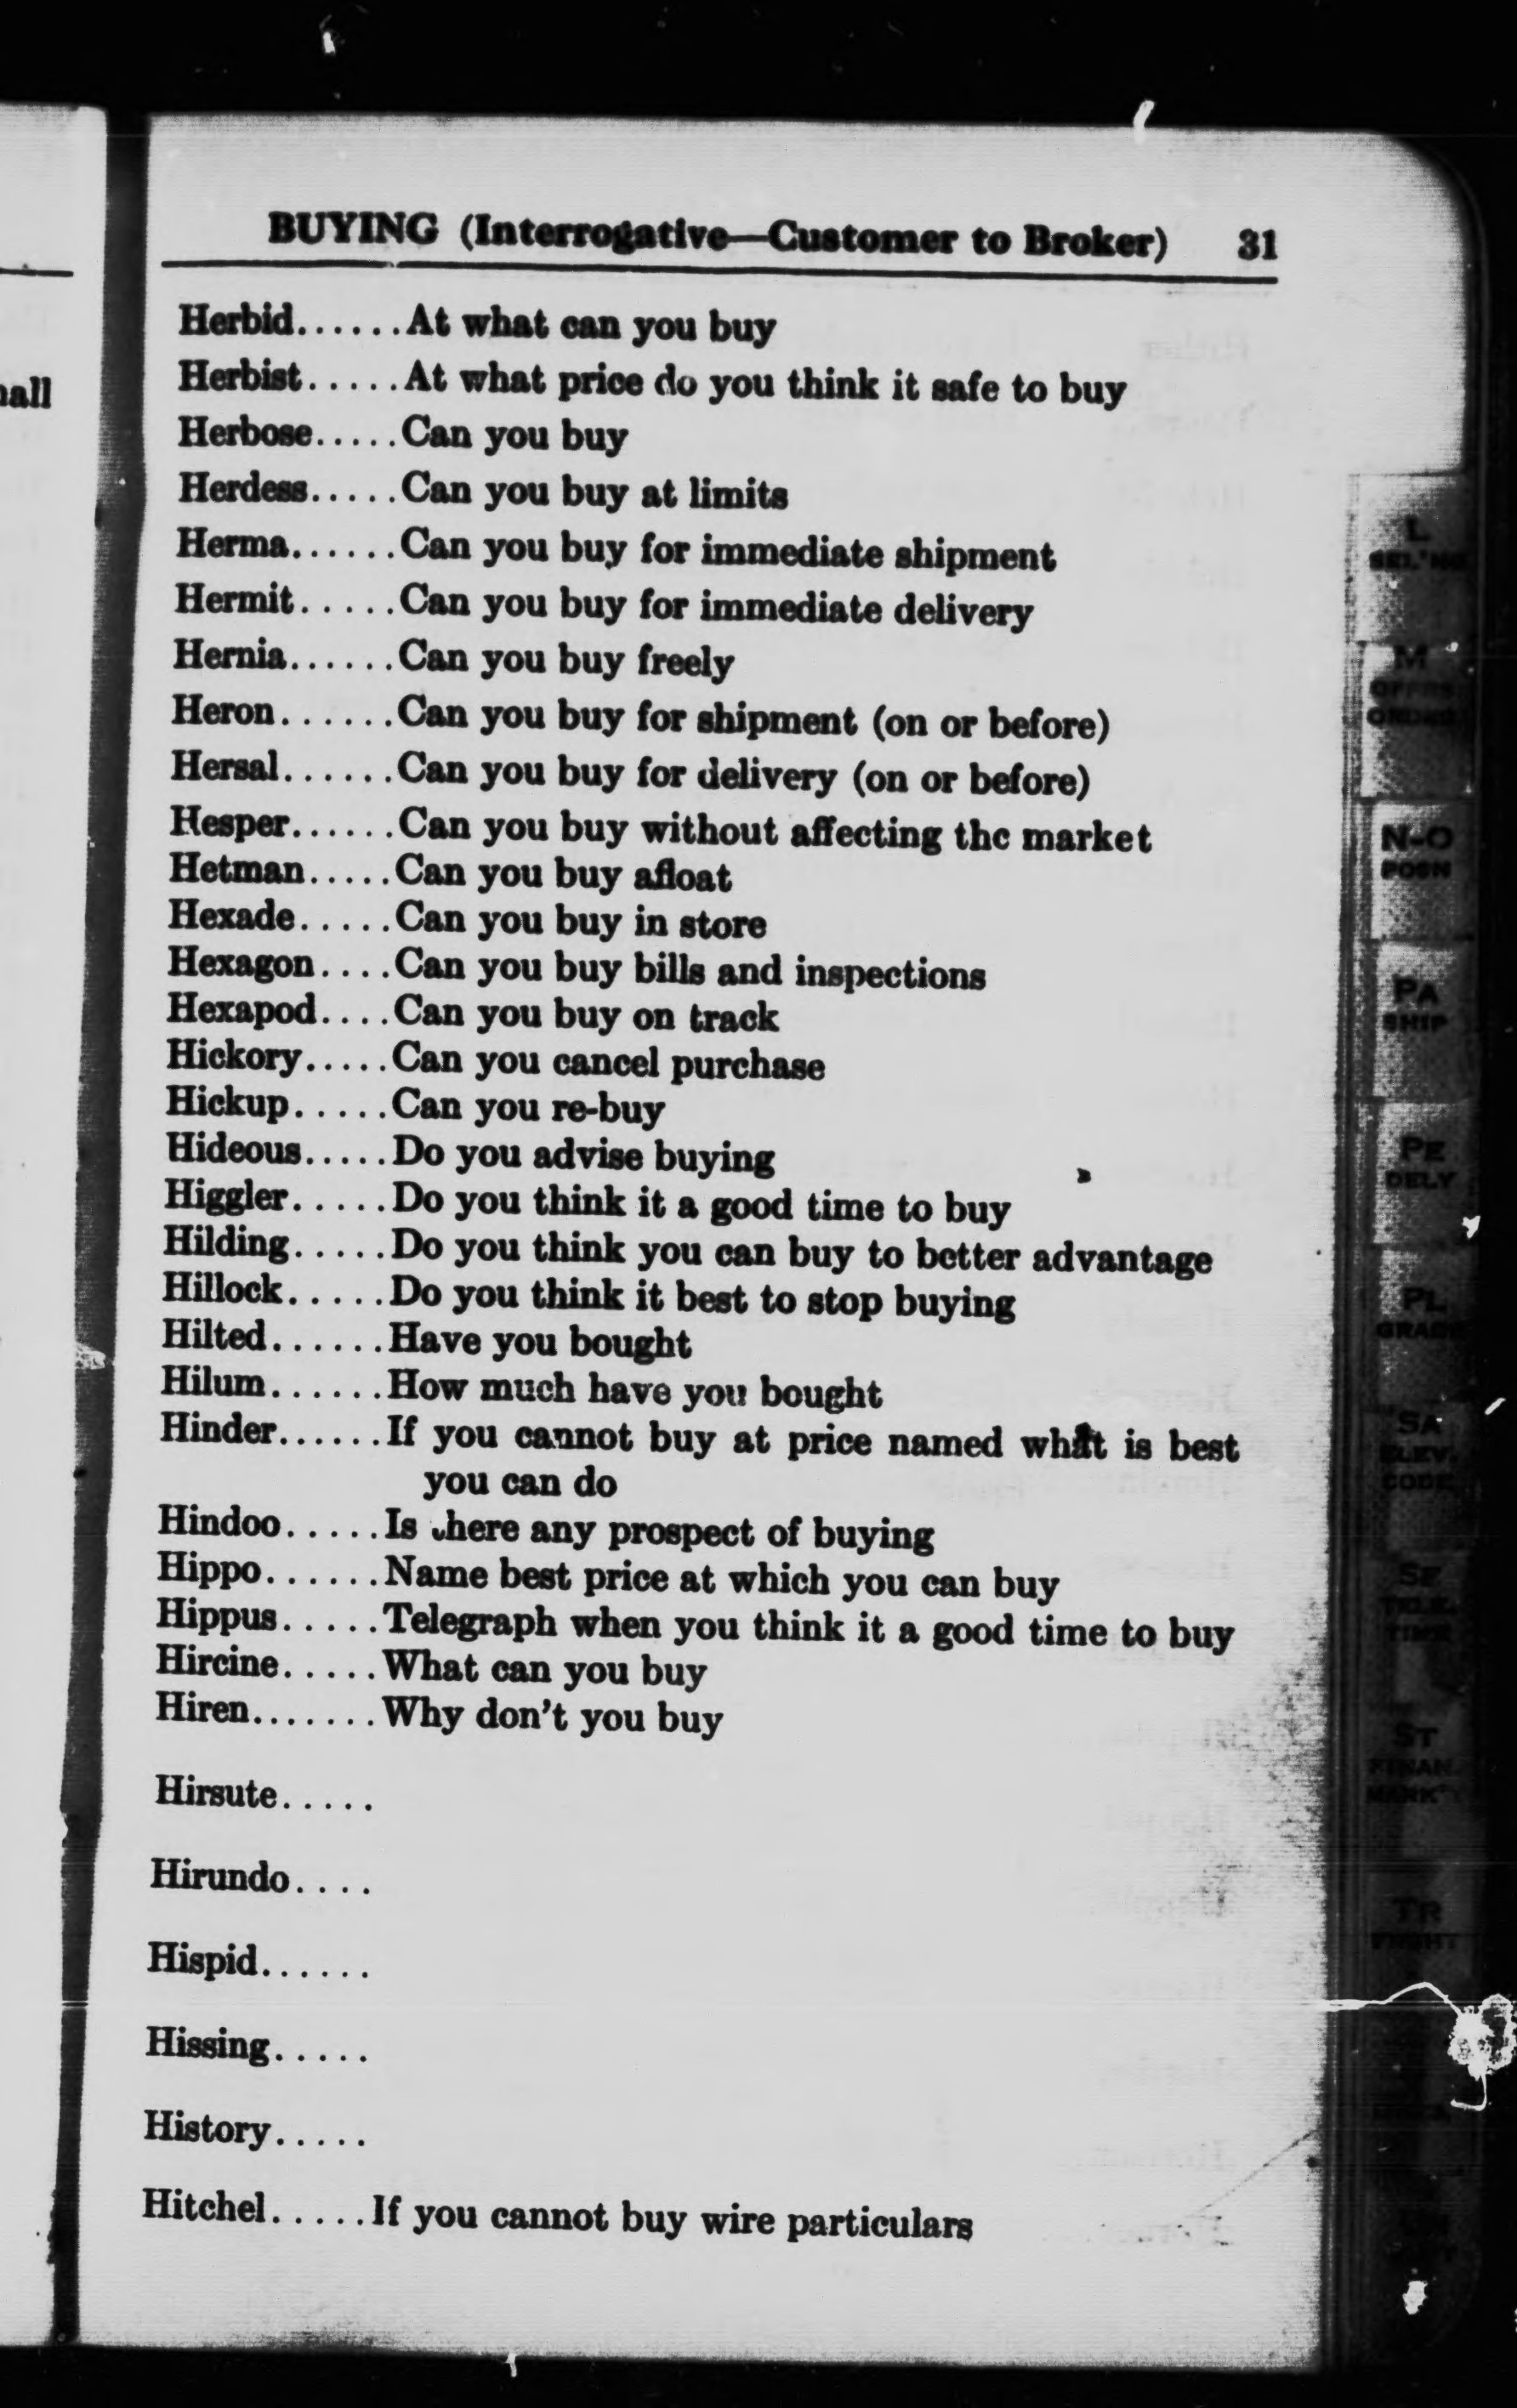 BUYING (Interrogative—Customer to Broker) 31
Herbid......At what can you buy
Herbist.....At what price do you think it safe to buy
Herbose.....Can you buy
Herdess.....Can you buy at limits
Herma......Can you buy for immediate shipment
Hermit.....Can you buy for immediate delivery
Hernia......Can you buy freely
Heron......Can you buy for shipment (on or before)
Hersal......Can you buy for delivery (on or before)
Hesper......Can you buy without affecting the market
Hetman.....Can you buy afloat
Hexade.....Can you buy in store
Hexagon....Can you buy bills and inspections
Hexapod....Can you buy on track
Hickory.....Can you cancel purchase
Hickup.....Can you re-buy
Hideous.....Do you advise buying
Higgler.....Do you think it a good time to buy
Hilding.....Do you think you can buy to better advantage
Hillock.....Do you think it best to stop buying
Hilted......Have you bought
Hilum......How much have you bought
Hinder......If you cannot buy at price named what is best
you can do
Hindoo.....Is there any prospect of buying
Hippo......Name best price at which you can buy
Hippus.....Telegraph when you think it a good time to buy
Hircine.....What can you buy
Hiren.......Why don't you buy
Hirsute.....
Hirundo....
Hispid......
Hissing.....
History.....
Hitchel.....If you cannot buy wire particulars
L
SEL'NG
M
N-O
POSN
PA
SHIP
PE
DELY
PL
SA
ELEV.
CODE
SE
ST
TR